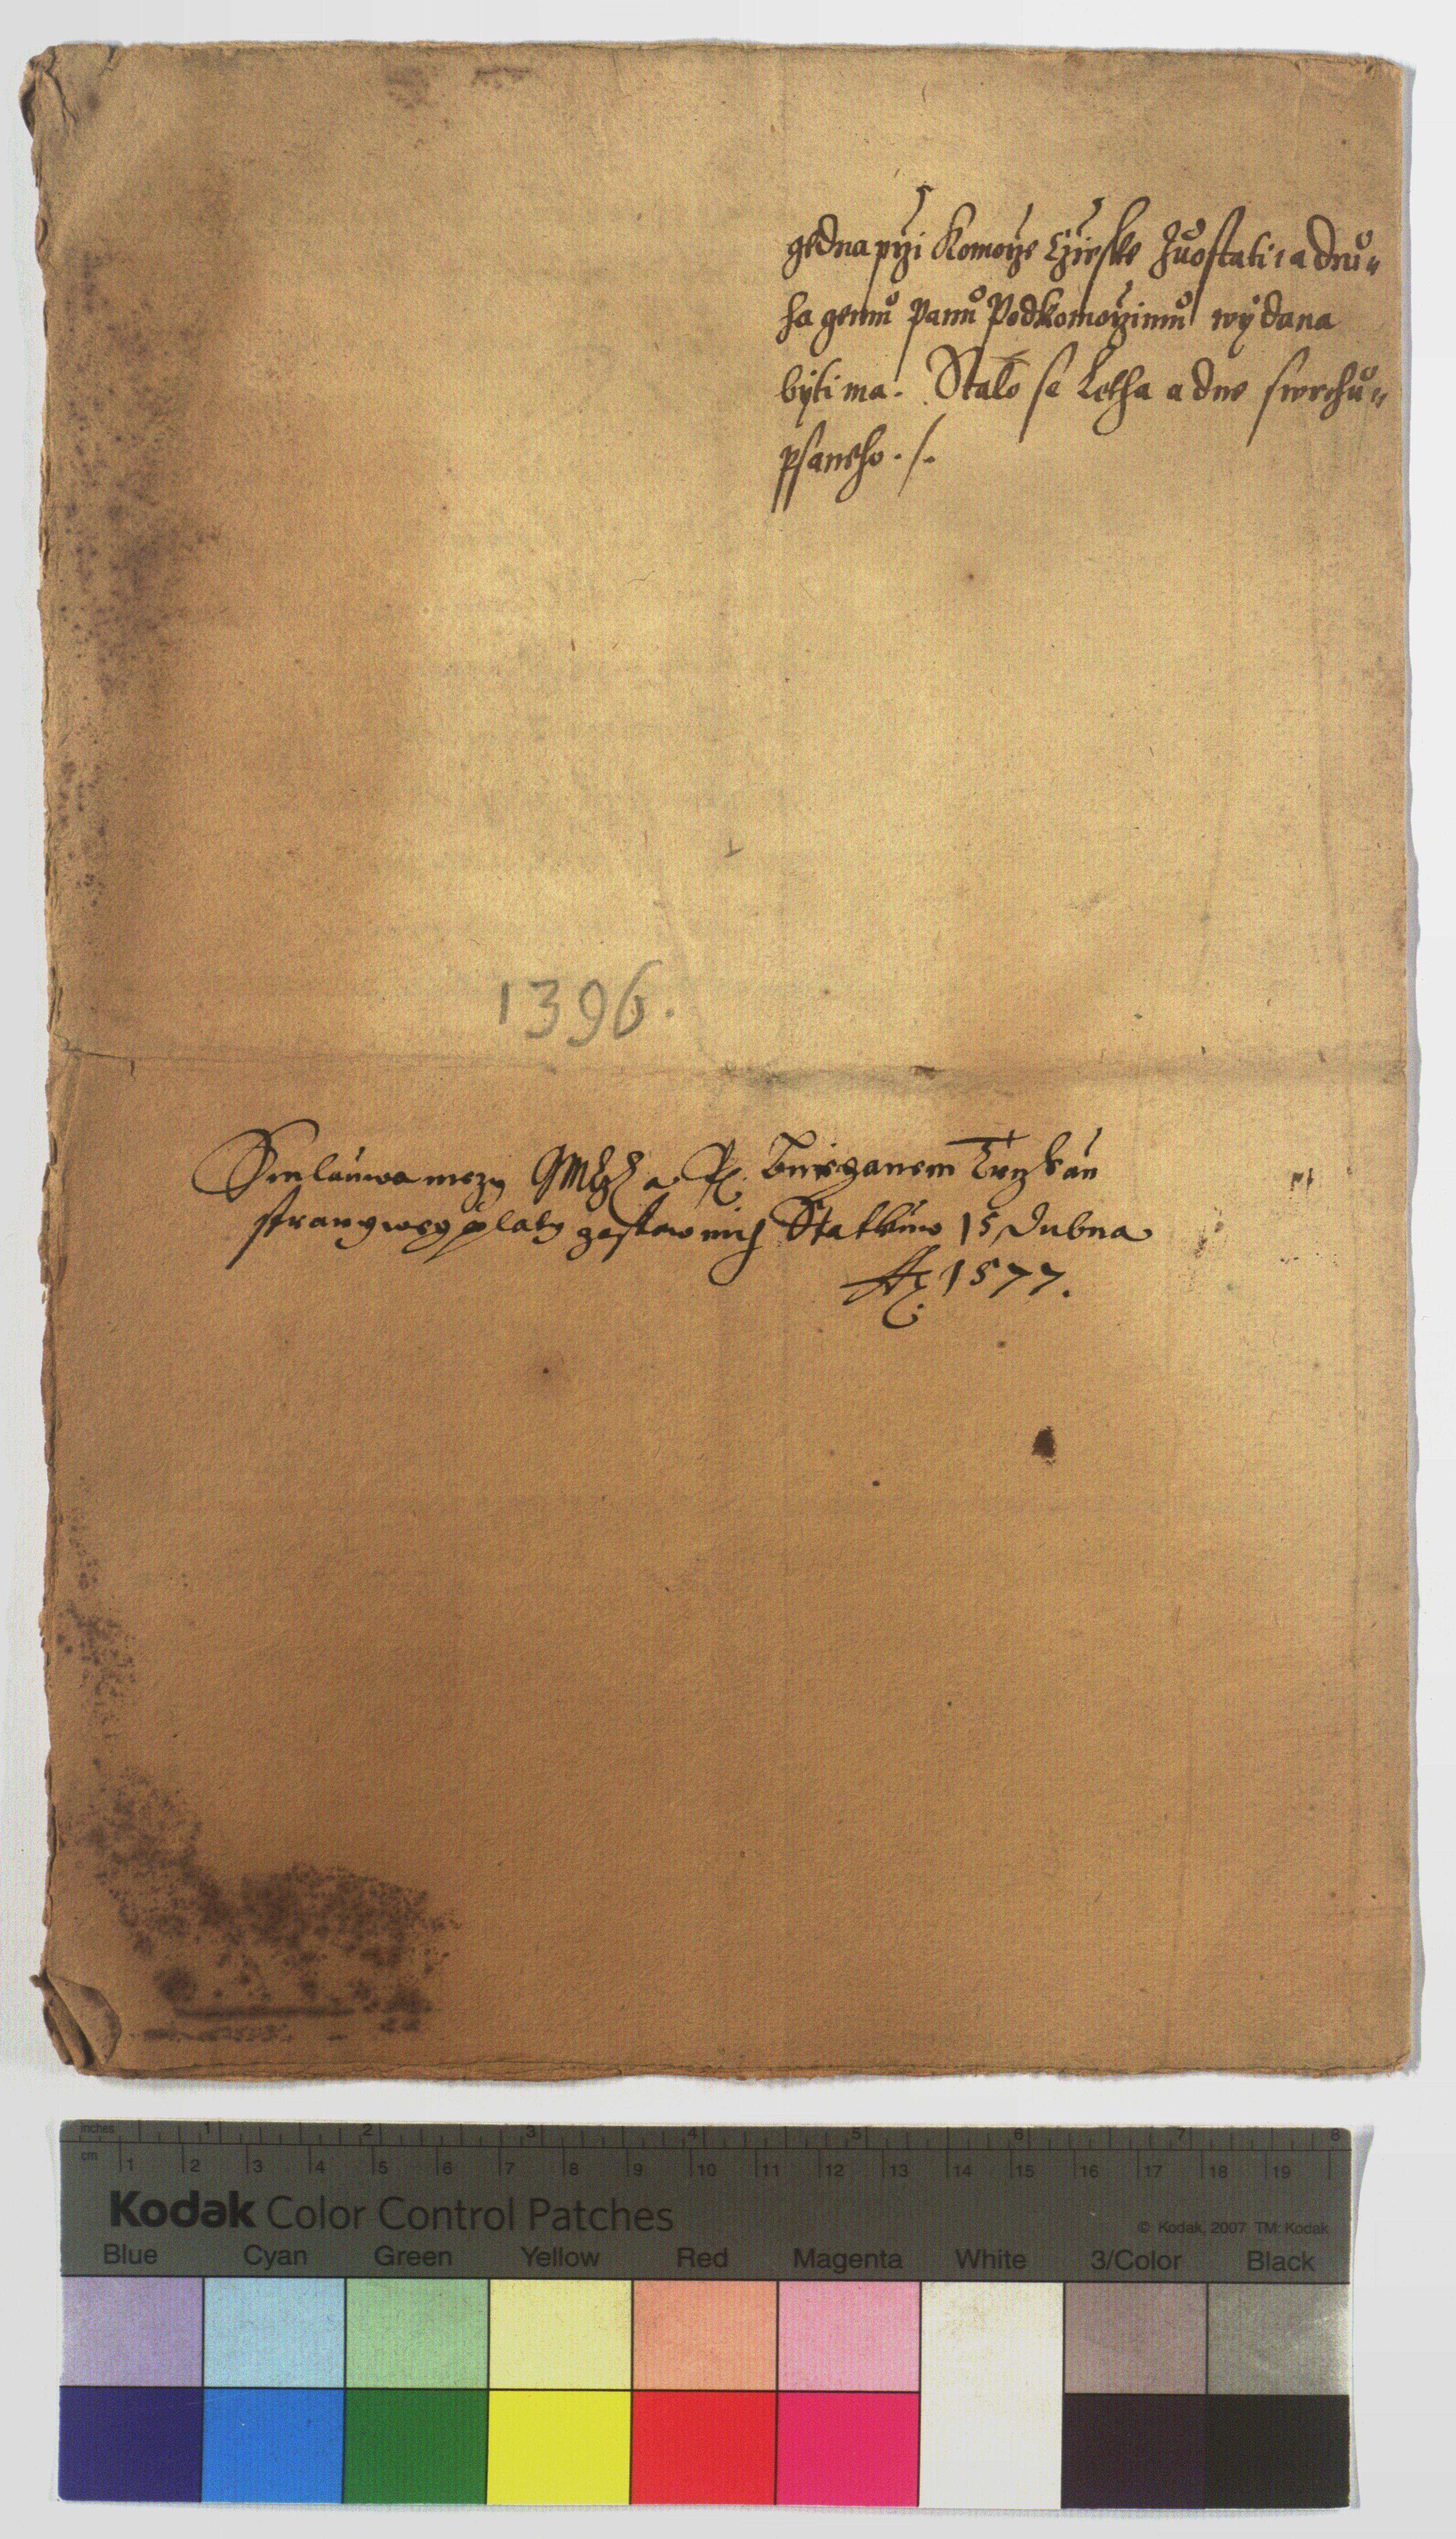 gedna przi Komorze Czieske Zuostati, a dru-
ha gemu Panu Podkomorzimu wydana
byti ma. Stalo se Letha a dne swrchu-
psaneho ./.
1396.
Smlauwa mezy GMCz a P.
strany platu Statkuw 15 Dubna
A° 1577.
inches 1 2 3 4 5 6 7 8
cm 1 2 3 4 5 6 7 8 9 10 11 12 13 14 15 16 17 18 19
Kodak Color Control Patches
© Kodak, 2007 TM: Kodak
Blue Cyan Green Yellow Red Magenta White 3/Color Black